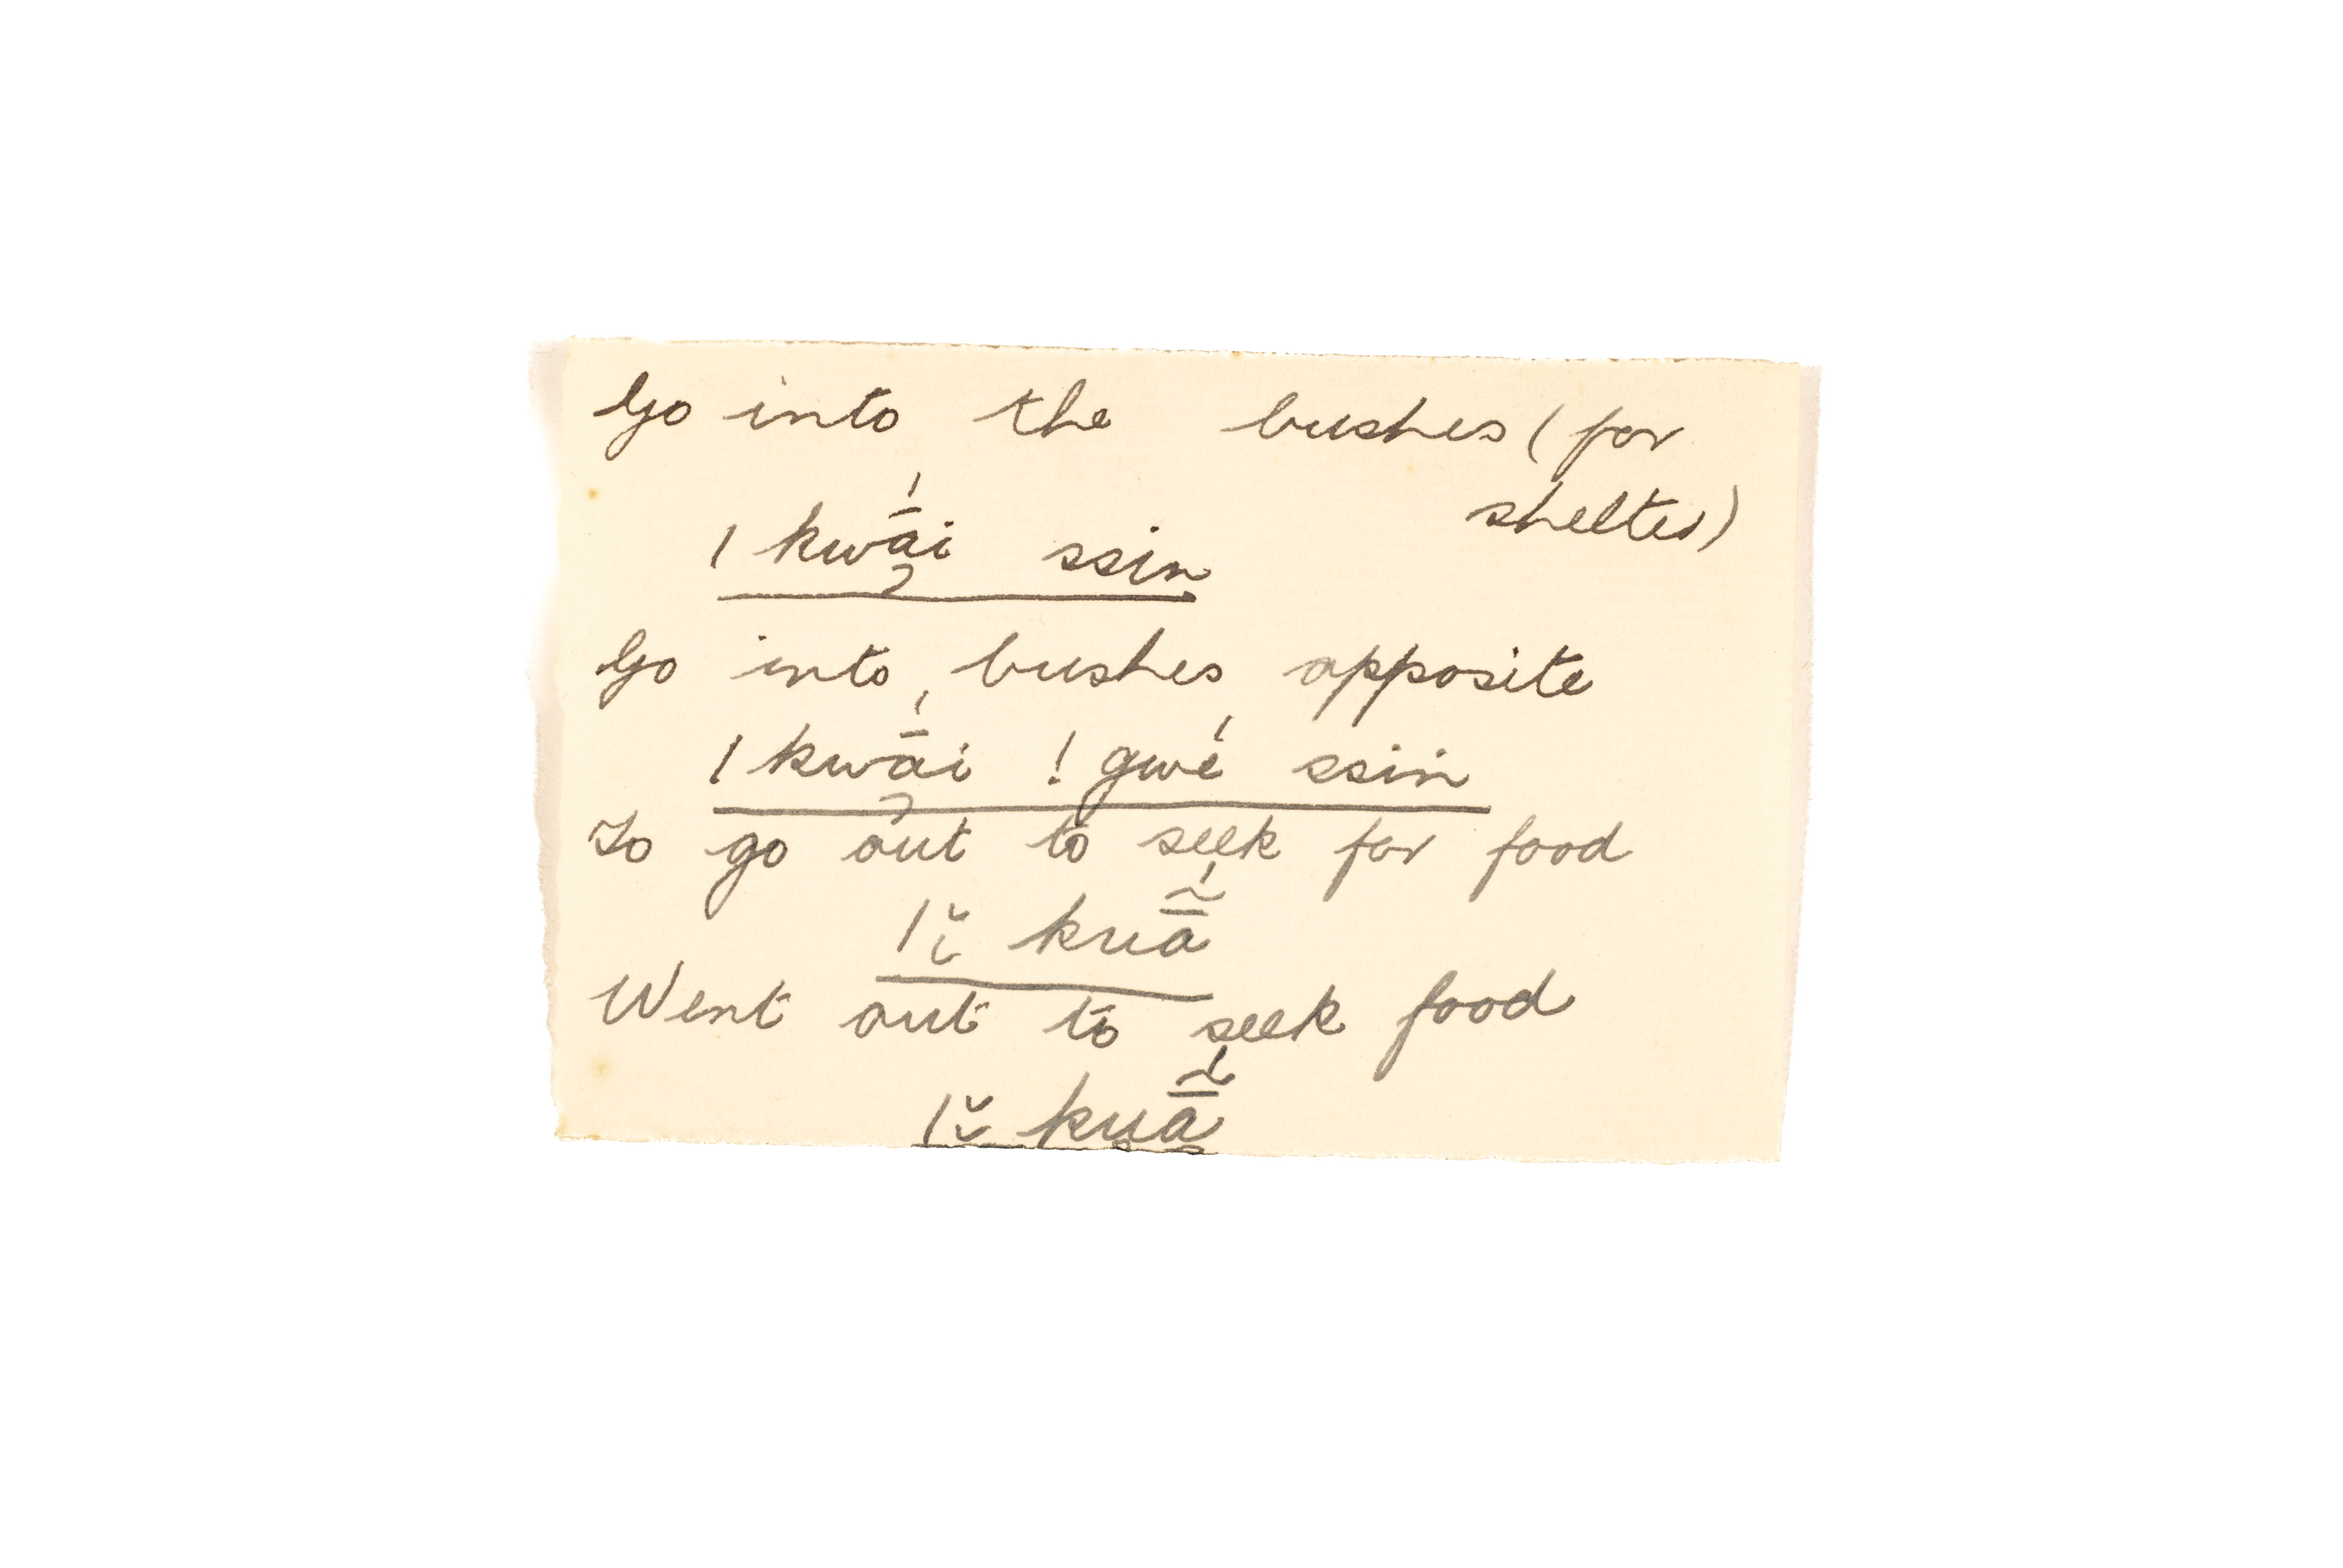 Go into the bushes (for
shelter)
ǀkwā́i ssin
Go into bushes opposite
ǀkwā́i !gwé ssin
To go out to seek for food
ǀĭ kuā̃́
Went out to seek food
ǀĭ kuā̃́